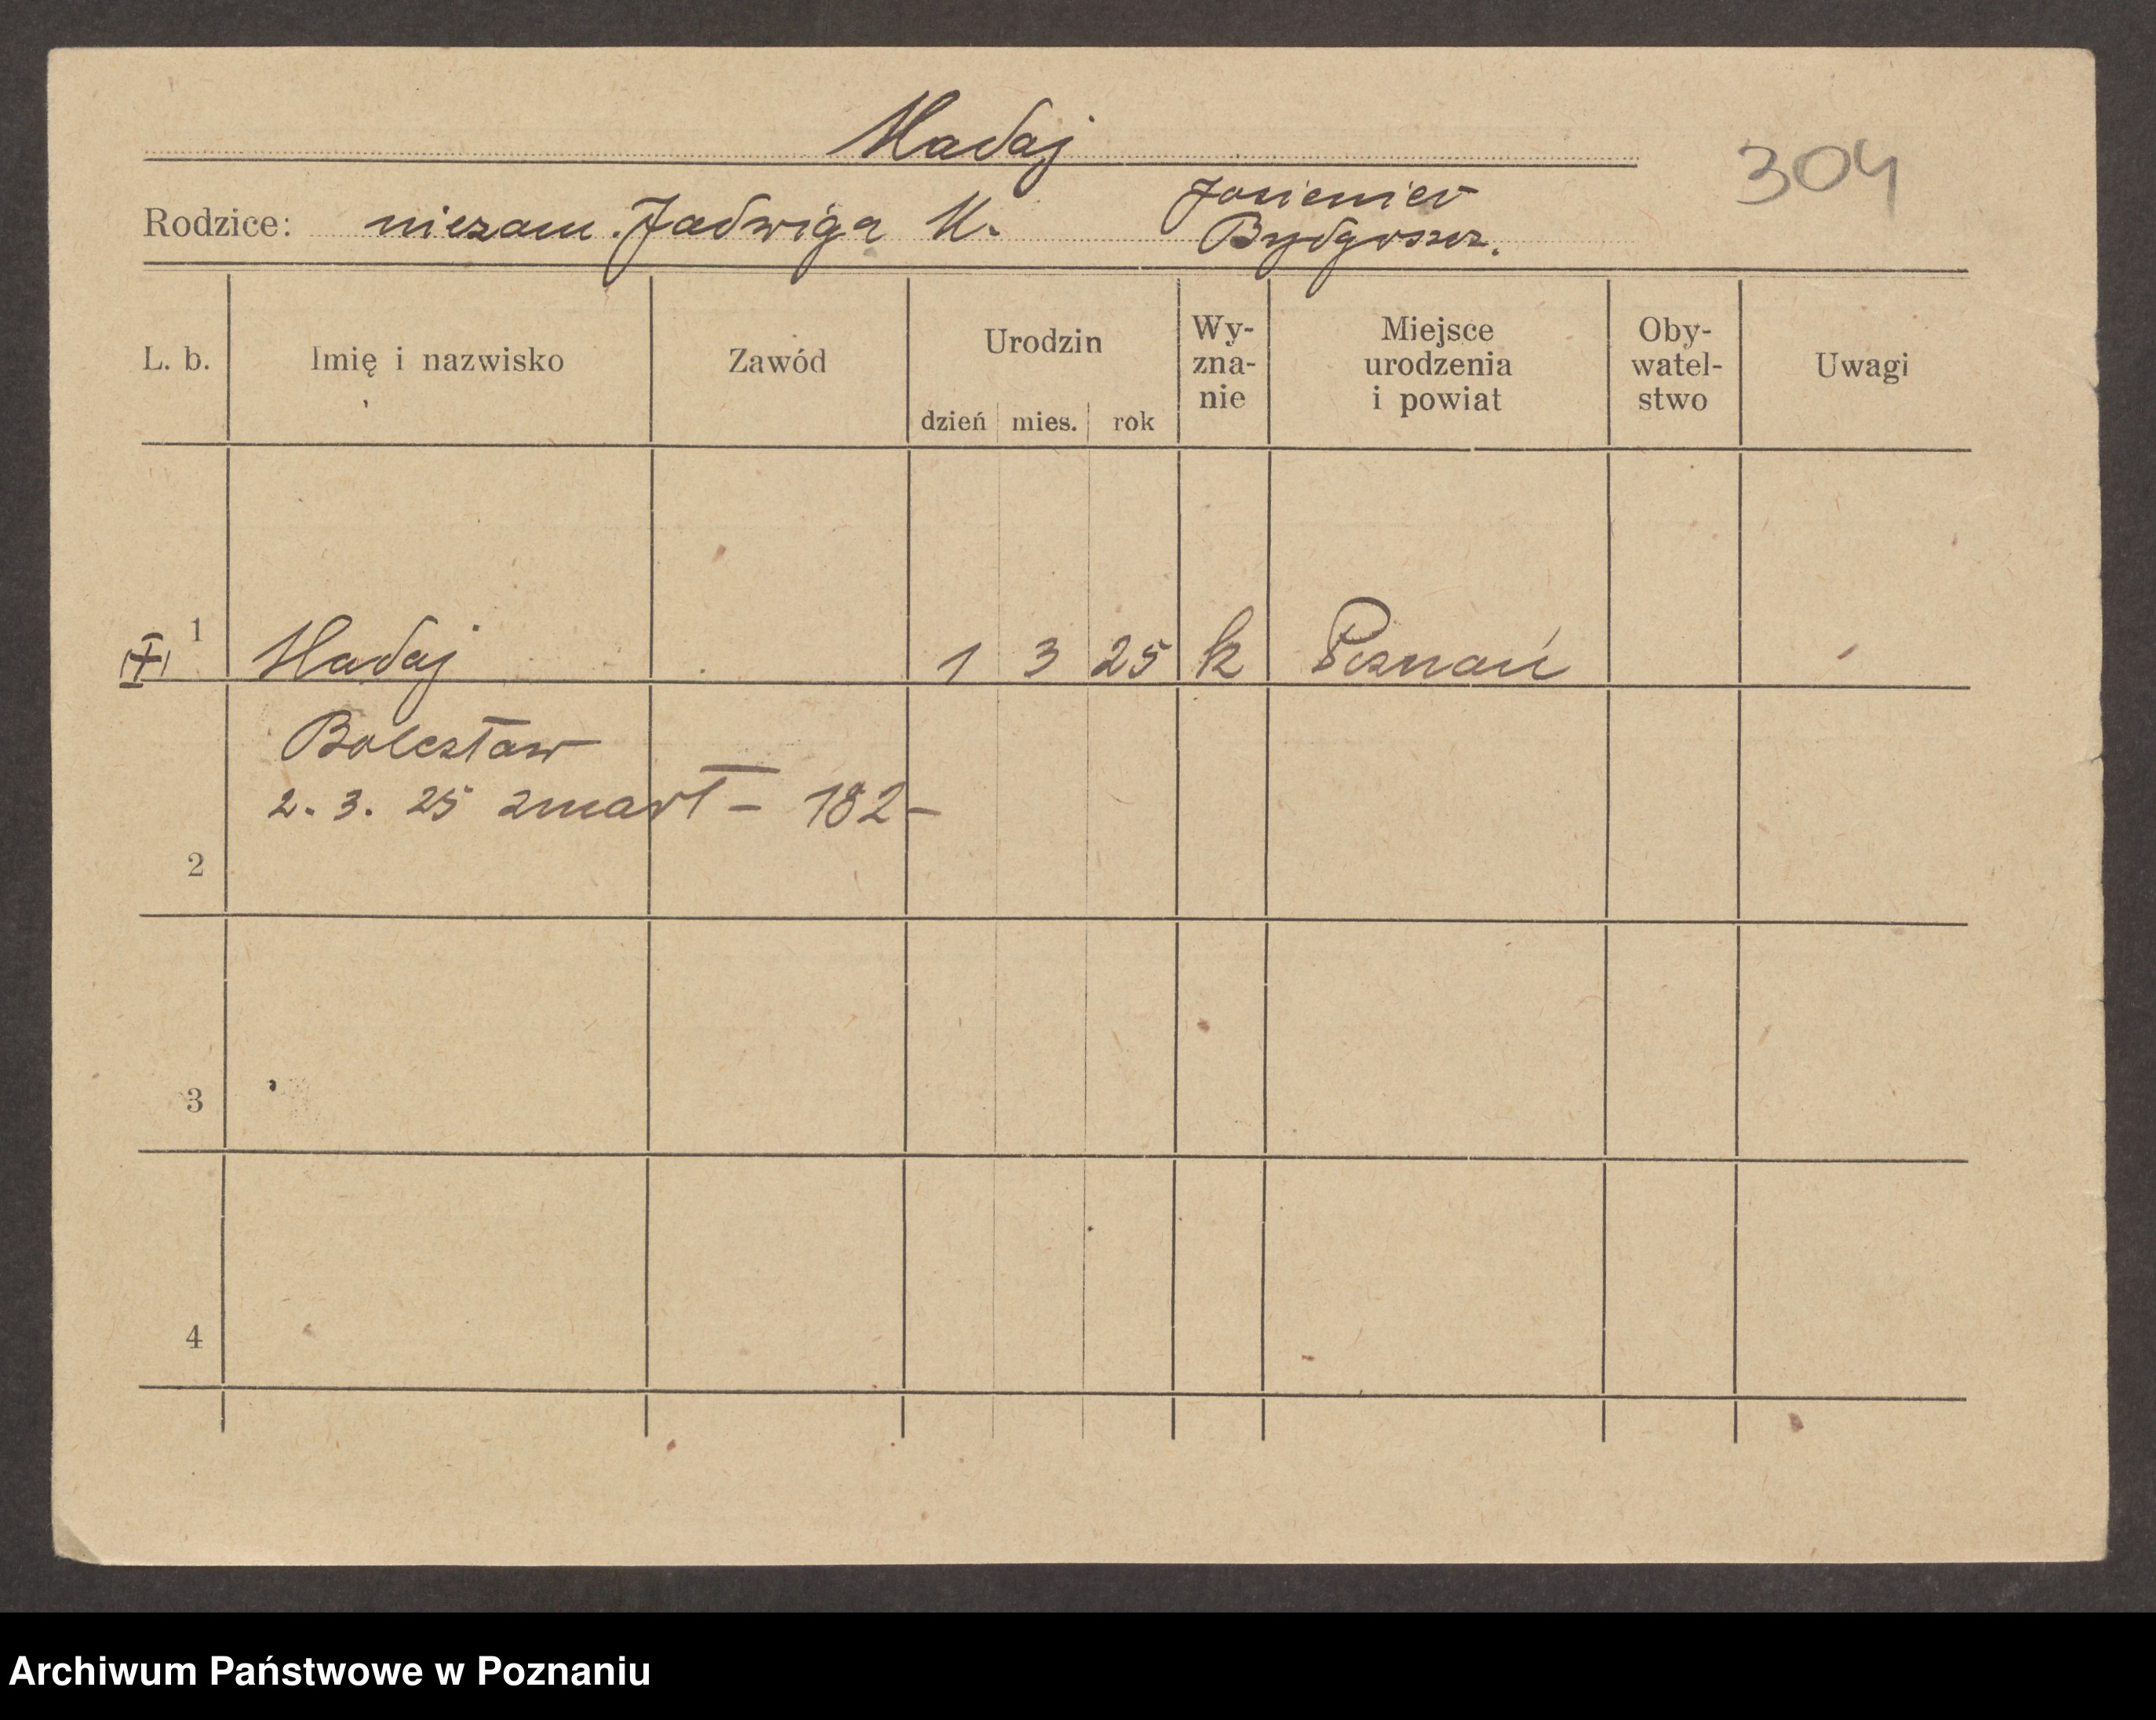 Madaj
304
Rodzice: niezam. Jadwiga M. Jasieniec
Bydgoszcz.
L. b. Imię i nazwisko Zawód Urodzin dzień mies. rok Wy-
zna-
nie Miejsce
urodzenia
i powiat Oby-
watel-
stwo Uwagi
1 Madaj 1 3 25 k Poznań
Bolesław
2. 3. 25 zmarł – 182 –
2
3
4
Archiwum Państwowe w Poznaniu